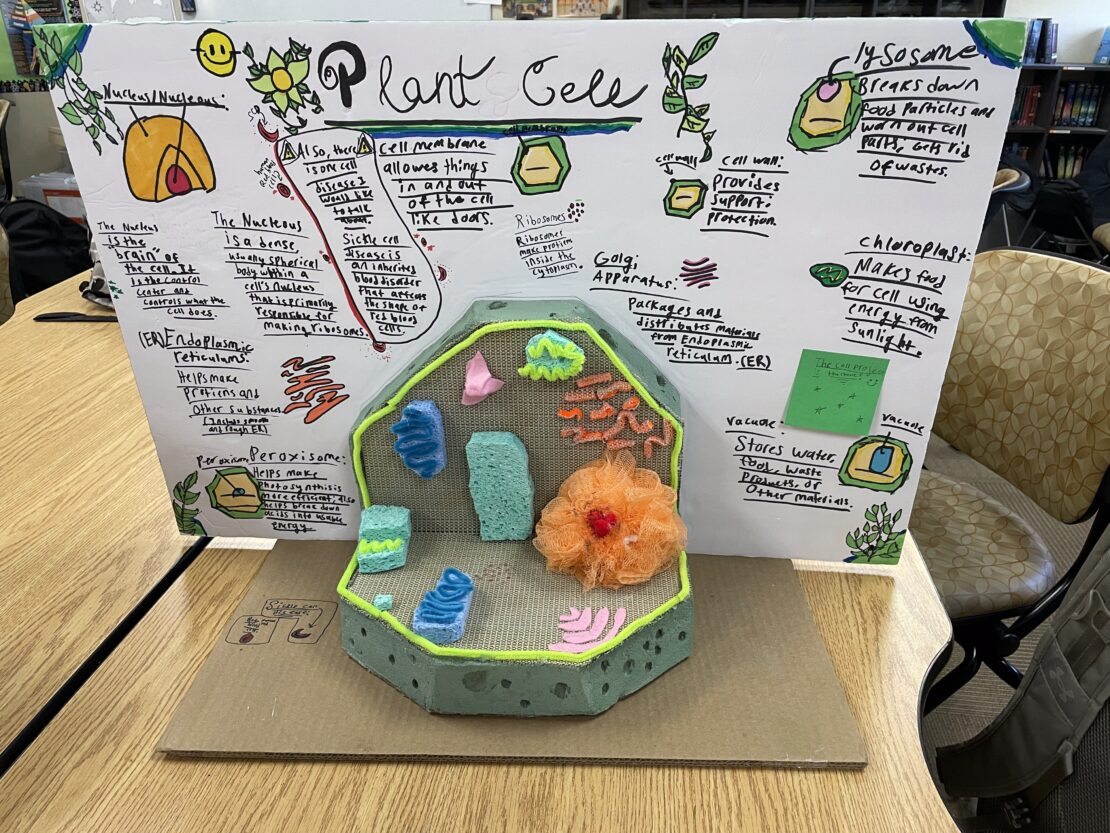 Plant Cell
Nucleus/Nucleous:
The Nucleus
is the
"brain" of
the cell. It
Is the control
center and
controls what the
cell does.
The Nucleous
is a dense,
usually spherical
body within a
cell's nucleus
that is primarily
responsible for
making ribosomes.
Also, there
is one cell
disease I
would like
to talk
about.
Sickle cell
disease is
an inherites
blood disorder
that affects
the shape of
red blood
cells.
cell membrane
cell membrane
allowes things
in and out
of the cell
like doors.
Ribosomes
Ribosomes
make protiens
inside the
cytoplasm.
cell wall
cell wall:
Provides
support &
protection.
Golgi
Apparatus:
Packages and
distributes materials
from Endoplasmic
reticulum. (ER)
lysosome
Breaks down
food particles and
worn out cell
parts, Gets rid
of wastes.
chloroplast:
Makes food
for cell using
energy from
sunlight.
The cell project
vacuole:
vacuole
Stores water,
food, waste
products, or
other materials.
(ER) Endoplasmic
reticulums:
Helps make
protiens and
other substances
(Includes smooth
and rough ER)
Peroxisome
Peroxisome:
Helps make
photosynthisis
more efficient, also
helps break down
acids into usable
energy.
Sickle cell
disease: